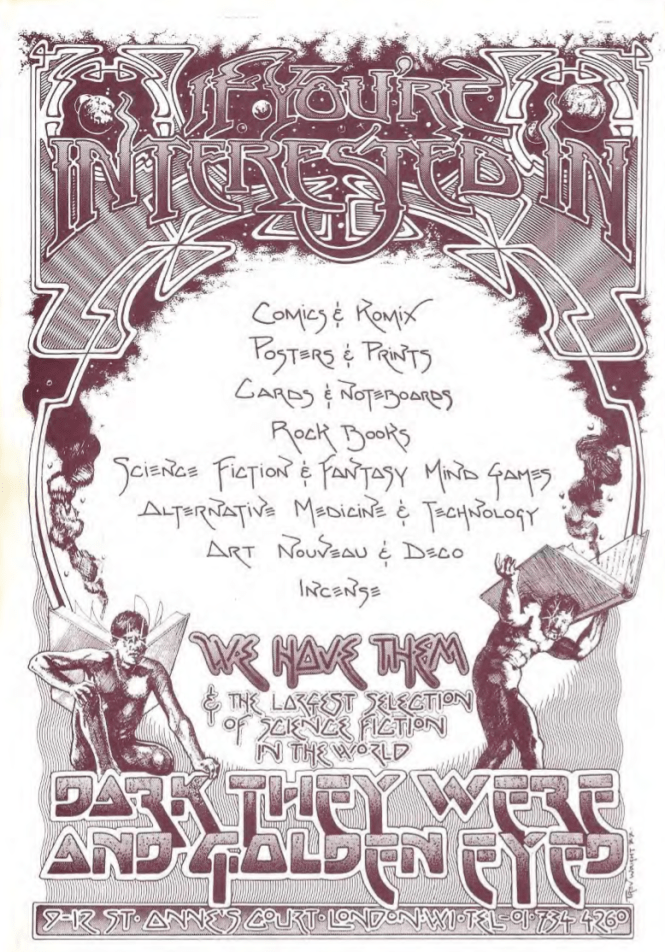 IF YOU'RE
INTERESTED IN
COMICS & KOMIX
POSTERS & PRINTS
CARDS & NOTEBOARDS
ROCK BOOKS
SCIENCE FICTION & FANTASY MIND GAMES
ALTERNATIVE MEDICINE & TECHNOLOGY
ART NOUVEAU & DECO
INCENSE
WE HAVE THEM
& THE LARGEST SELECTION
OF SCIENCE FICTION
IN THE WORLD
DARK THEY WERE
AND GOLDEN EYED
9-12 ST· ANNE'S COURT· LONDON·W1·TEL-01·734 4260